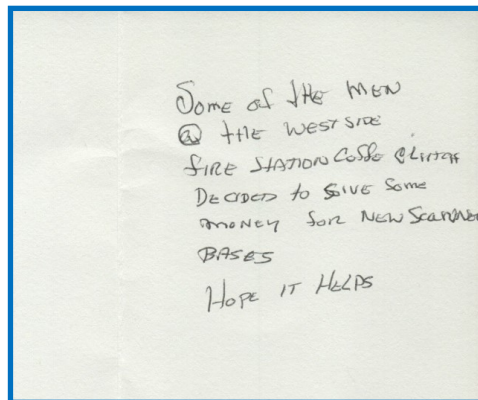 Some of the men
@ the west side
fire station
Decided to give some
money for new
bases
Hope it helps